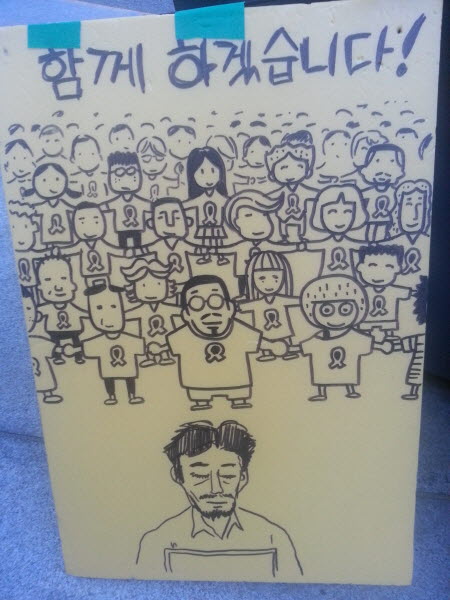 함께 하겠습니다!